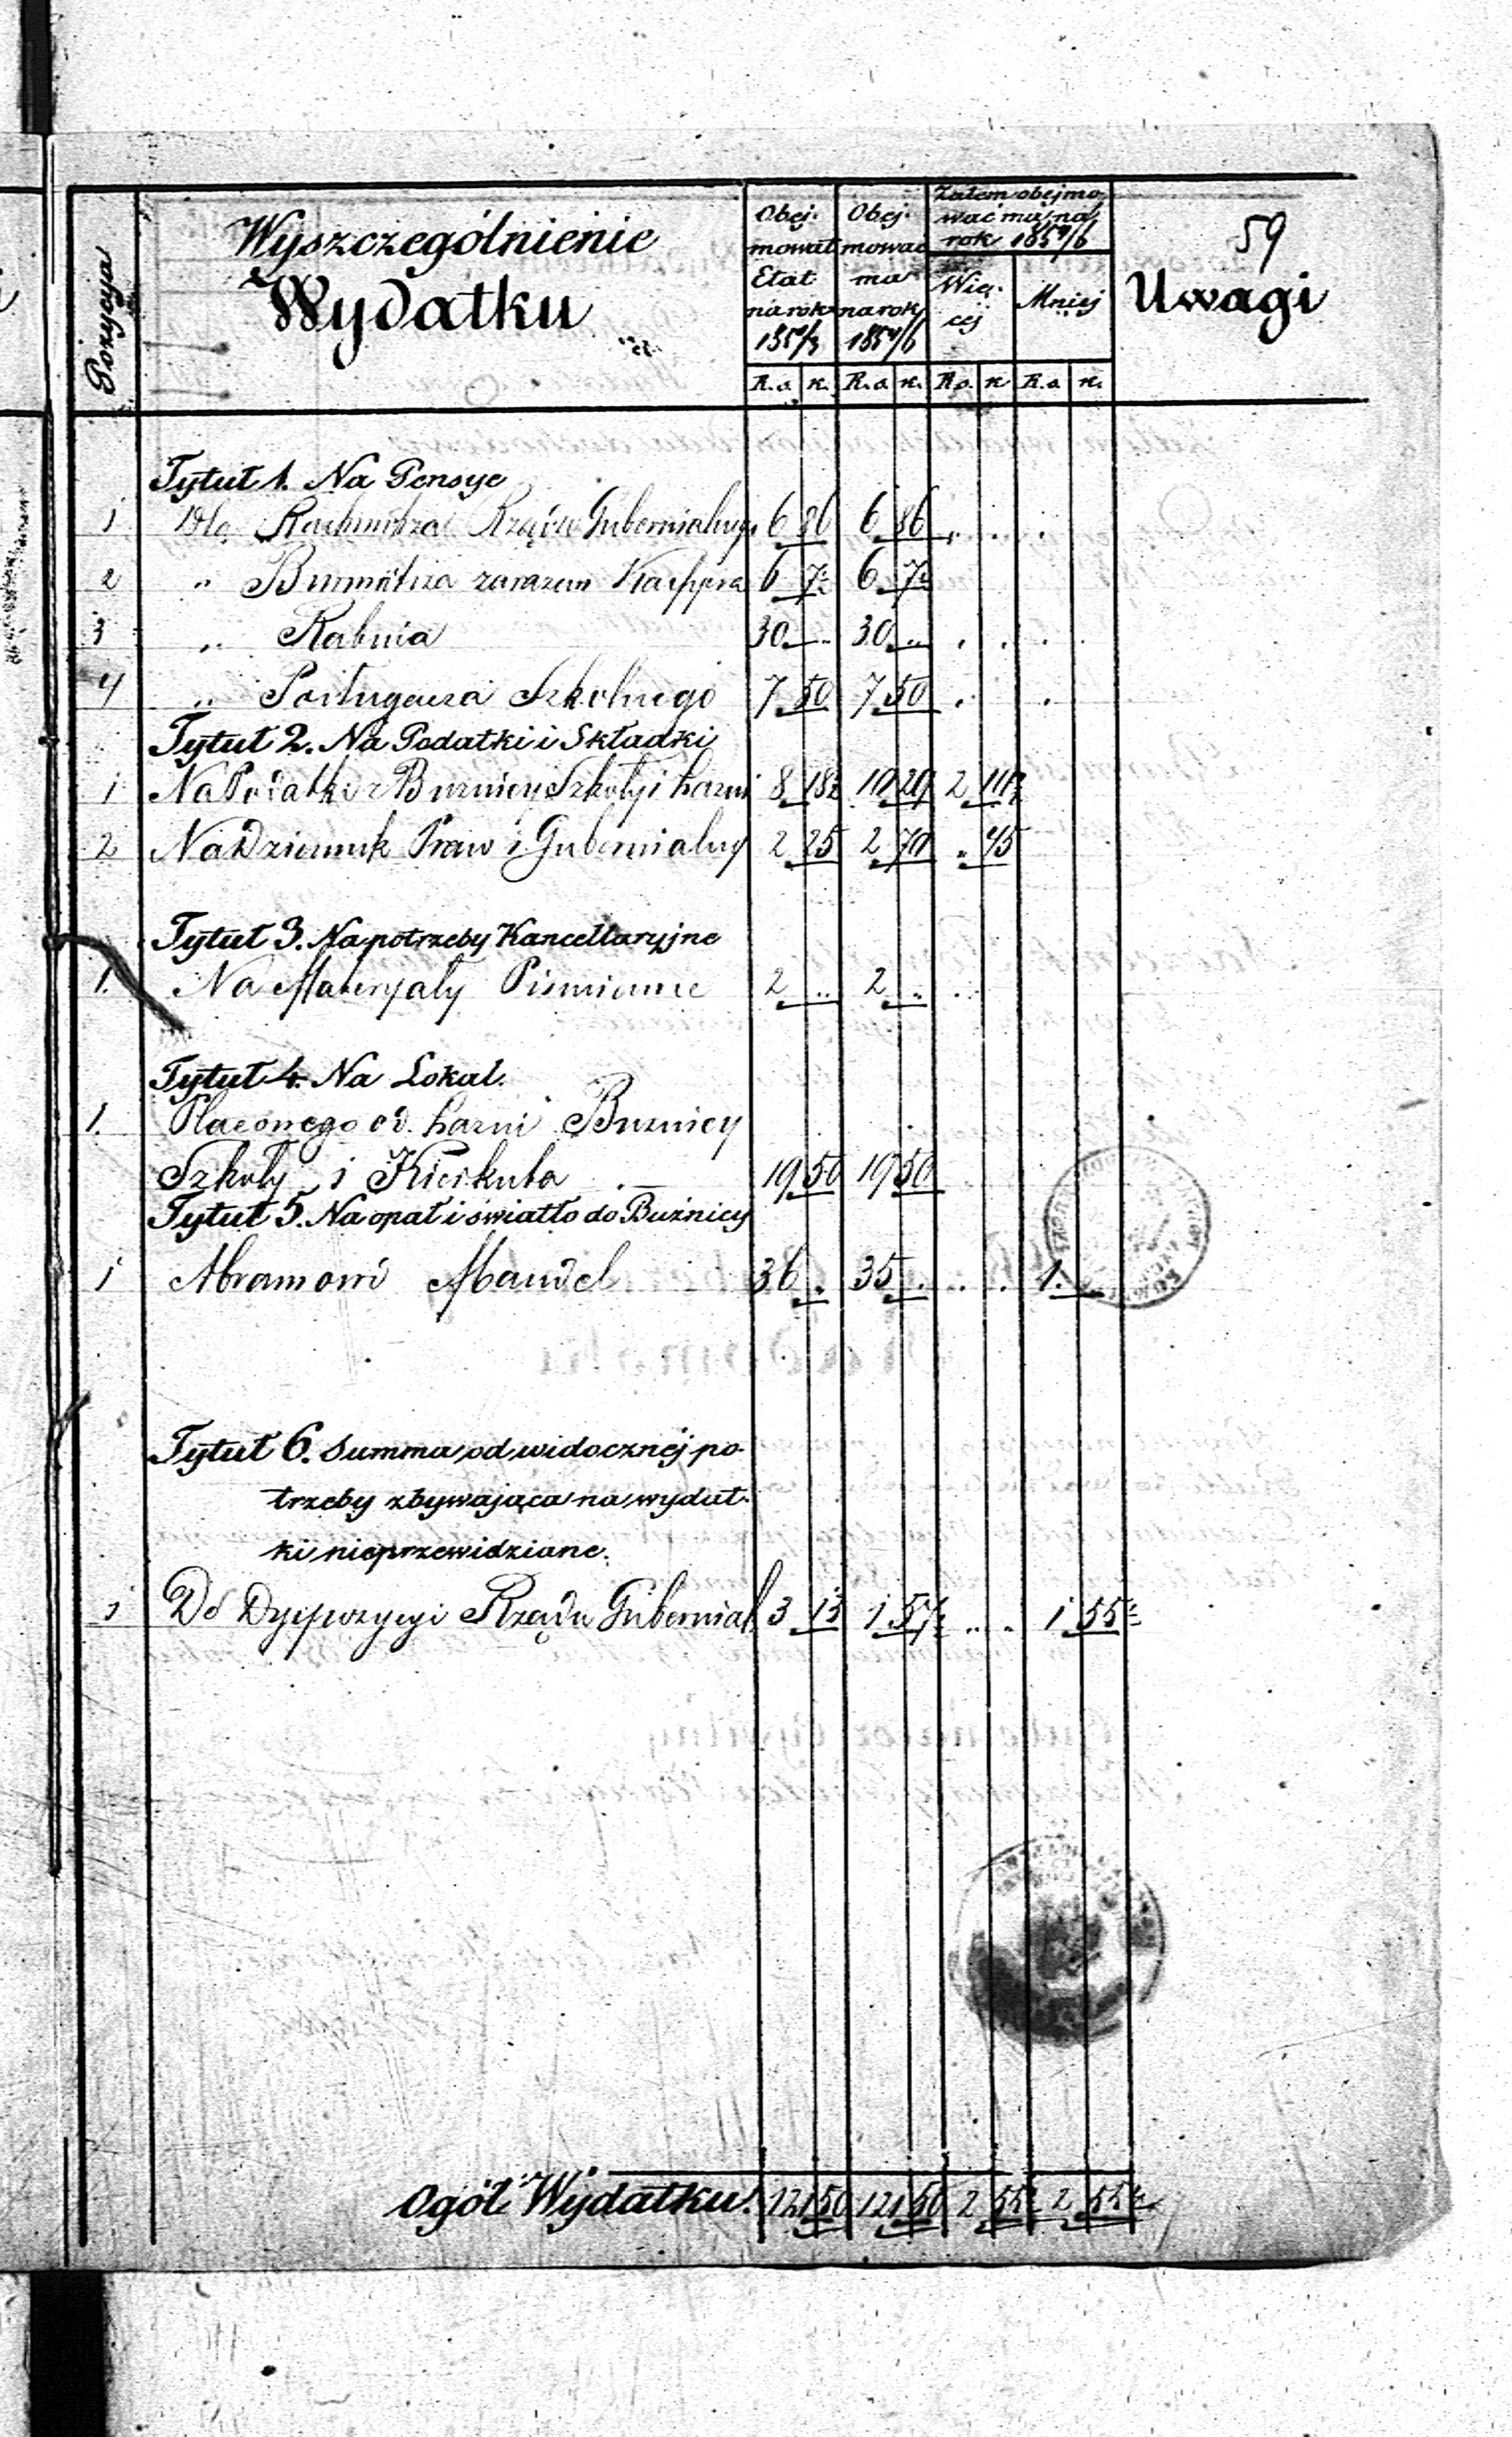 59
Pozycya
Wyszczególnienie
Wydatku
Obej-
mował
Etat
na rok
185¹/3
Obej-
mować
ma
na rok
185⁴/6
Zatem obejmo
wać ma na
rok 185⁴/6
Wię-
cej
Mniej
Uwagi
R.s. k. R.s. k. R.s. k. R.s. k.
Tytuł 1. Na Pensye
1 Dla Rachmistrza Rządu Gubernialnego 6 86 6 86
2 " Burmistrza zarazem Kassyera 6 7½ 6 7½
3 " Rabina 30 .. 30 ..
4 " Posługacza Szkolnego 7 50 7 50
Tytuł 2. Na Podatki i Składki
1 Na Podatki z Buznicy Szkoły i Łazni 8 18½ 10 29 2 10½
2 Na Dziennik Praw i Gubernialny 2 25 2 70 .. 45
Tytuł 3. Na potrzeby Kancellaryjne
1. Na Materyały Piśmienne 2 .. 2 ..
Tytuł 4. Na Lokal.
1. Płaconego od Łazni Buznicy
Szkoły i Kierkuta 19 50 19 50
Tytuł 5. Na opał i światło do Buźnicy
1 Abramowi Mandel 36 .. 35 .. 1 ..
Tytuł 6. Summa od widocznéj po-
trzeby zbywająca na wydat-
ki nieprzewidziane.
1 Do Dyspozycyi Rządu Gubernial 3 13 1 57½ 1 55½
Ogół Wydatku. 121 50 121 50 2 55½ 2 55½